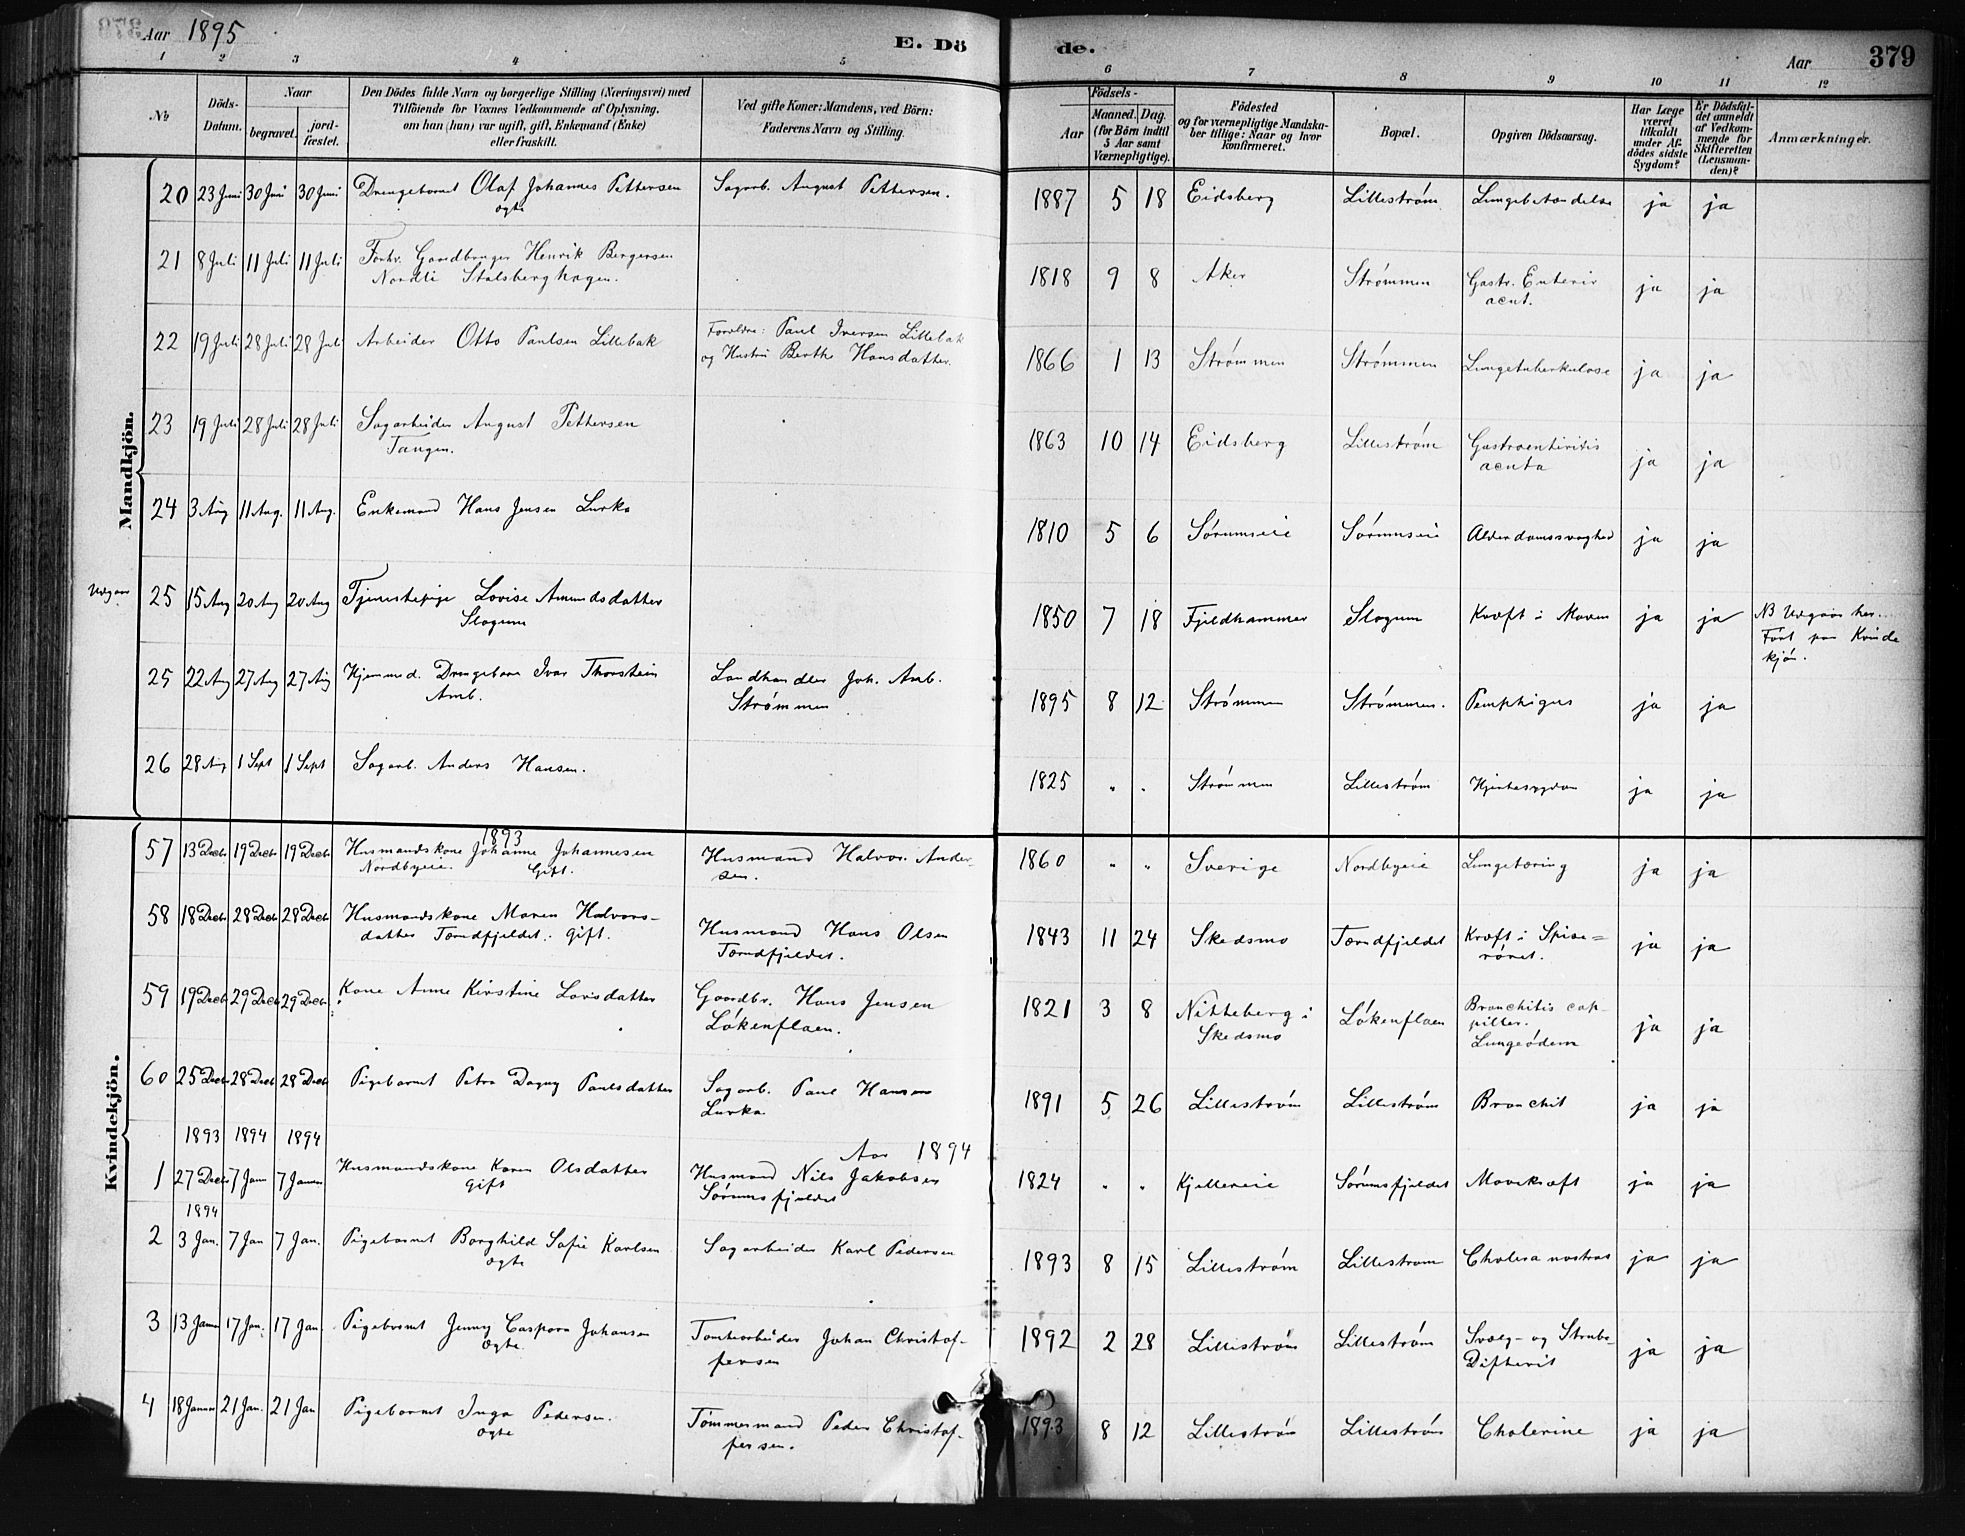 Aar 1895
E. Döde.
Aar
379
1 2 3 4 5 6 7 8 9 10 11 12
No
Döds-Datum.
Naar
begravet.
jordfæstet.
Den Dödes fulde Navn og borgerlige Stilling (Næringsvei) med
Tilföiende for Voxnes Vedkommende af Oplysning,
om han (hun) var ugift, gift, Enkemand (Enke)
eller fraskilt.
Ved gifte Koner: Mandens, ved Börn:
Faderens Navn og Stilling.
Födsels-
Aar
Maaned. Dag.
(for Börn indtil
5 Aar samt
Værnepligtige).
Födested
og for værnepligtige Mandskaber tillige: Naar og hvor
konfirmeret.
Bopæl.
Opgiven Dödsaarsag.
Har Læge
været
tilkaldt
under Afdödes sidste
Sygdom?
Er Dödsfaldet anmeldt
af Vedkommende for
Skifteretten
(Lensmanden)?
Anmærkninger.
Mandkjön.
20 23 Juni 30 Juni 30 Juni Drengebarnet Olaf Johannes Pettersen Sagarb. August Pettersen. 1887 5 18 Eidsberg Lillestrøm Lungebetændelse ja ja
ægte
21 8 Juli 11 Juli 11 Juli Forhv. Gaardbruger Henrik Bergersen 1818 9 8 Aker Strømmen Gastr. Enterir ja ja
Nordli Stalsberghagen. acut.
22 19 Juli 28 Juli 28 Juli Arbeider Otto Paulsen Lillebak Forældre: Paul Iversen Lillebak 1866 1 13 Strømmen Strømmen Lungetuberkulose ja ja
og Hustru Berthe Hansdatter
23 19 Juli 28 Juli 28 Juli Sagarbeider August Pettersen 1863 10 14 Eidsberg Lillestrøm Gastroenteritis ja ja
Tangen. acuta
24 3 Aug 11 Aug. 11 Aug. Enkemand Hans Jensen Lurka 1810 5 6 Sørumseie Sørumseie Alderdomssvaghed ja ja
Udgaar 25 15 Aug 20 Aug 20 Aug Tjenestepige Lovise Amundsdatter 1850 7 18 Fjeldhammer Slogum Kræft i Maven ja ja NB Udgaar her.
Slogum Ført paa Kvinde
kjön.
25 22 Aug 27 Aug 27 Aug Hjemmed. Drengebarn Ivar Thorstein Landhandler Joh. Amb. 1895 8 12 Strømmen Strømmen. Pemphigus ja ja
Amb. Strømmen
26 28 Aug 1 Sept 1 Sept Sagarb. Anders Hansen. 1825 " " Strømmen Lillestrøm Hjertesygdom ja ja
Kvindekjön.
1893
57 13 Decb. 19 Decb. 19 Decb. Husmandskone Johanne Johannesen Husmand Halvor Andersen. 1860 " " Sverige Nordbyeie Lungetæring ja ja
Nordbyeie. Gift.
58 18 Decb. 28 Decb. 28 Decb. Husmandskone Maren Halvors- Husmand Hans Olsen 1843 11 24 Skedsmo Tærudfjeldet Kræft i Spise= ja ja
datter Tærudfjeldet. gift. Tærudfjeldet. røret.
59 19 Decb. 29 Decb. 29 Decb. Kone Anne Kirstine Larsdatter Gaardbr. Hans Jensen 1821 3 8 Nitteberg i Løkenflaen Bronchitis cap- ja ja
Løkenflaen. Skedsmo piller.
Lungeødem
60 25 Decb. 28 Decb 28 Decb Pigebarnet Petra Dagny Paulsdatter Sagarb. Paul Hansen 1891 5 26 Lillestrøm Lillestrøm Bronchit ja ja
Lurka.
1893 1894 1894 Aar 1894
1 27 Decb. 7 Janr 7 Januar Husmandskone Karen Olsdatter Husmand Nils Jakobsen 1824 " " Kjellereie Sørumsfjeldet Mavekræft ja ja
Gift Sørumsfjeldet
1894
2 3 Jan. 7 Jan 7 Jan. Pigebarnet Borghild Sofie Karlsen Sagarbeider Karl Pedersen 1893 8 15 Lillestrøm Lillestrøm Cholera nostras ja ja
ægte
3 13 Janr 17 Jan. 17 Jan. Pigebarnet Jenny Caspara Johansen Tomtearbeider Johan Christof- 1892 2 28 Lillestrøm Lillestrøm Svælg- og Strube- ja ja
ægte. fersen Difterit
4 18 Januar 21 Jan. 21 Jan Pigebarnet Inga Pedersen. Tømmermand Peder Christof- 1893 8 12 Lillestrøm Lillestrøm Cholerine ja ja
ægte fersen.